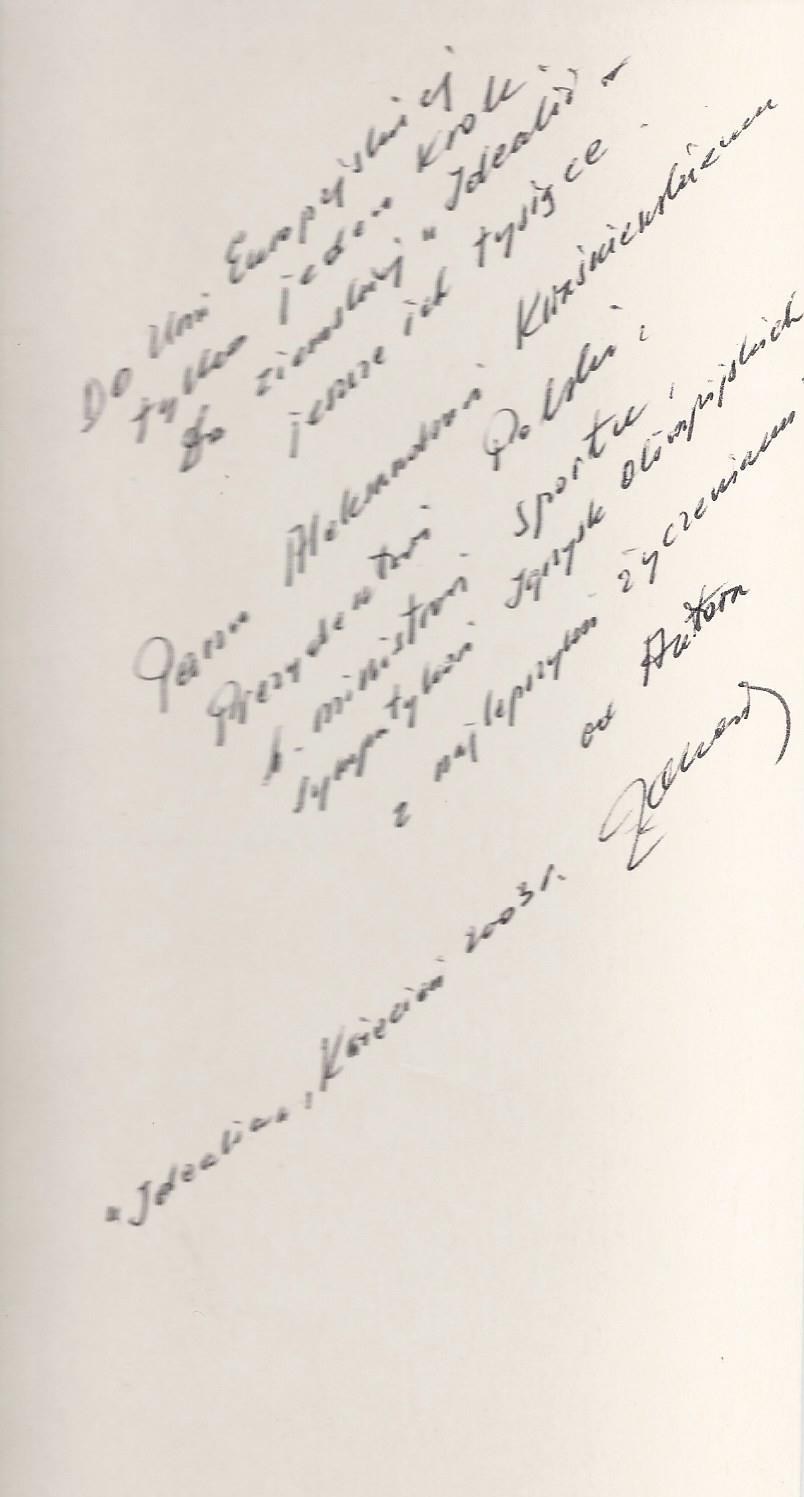 Do Unii Europejskiej
tylko jeden krok.
do ziemskiej "Idealii"
jeszcze ich tysiące.
Panu Aleksandrowi Kwaśniewskiemu
Prezydentowi Polski,
b. ministrowi sportu,
sympatykowi Igrzysk olimpijskich
z najlepszymi życzeniami
od Autora
"Idealiana, Kwiecień 2003 r.